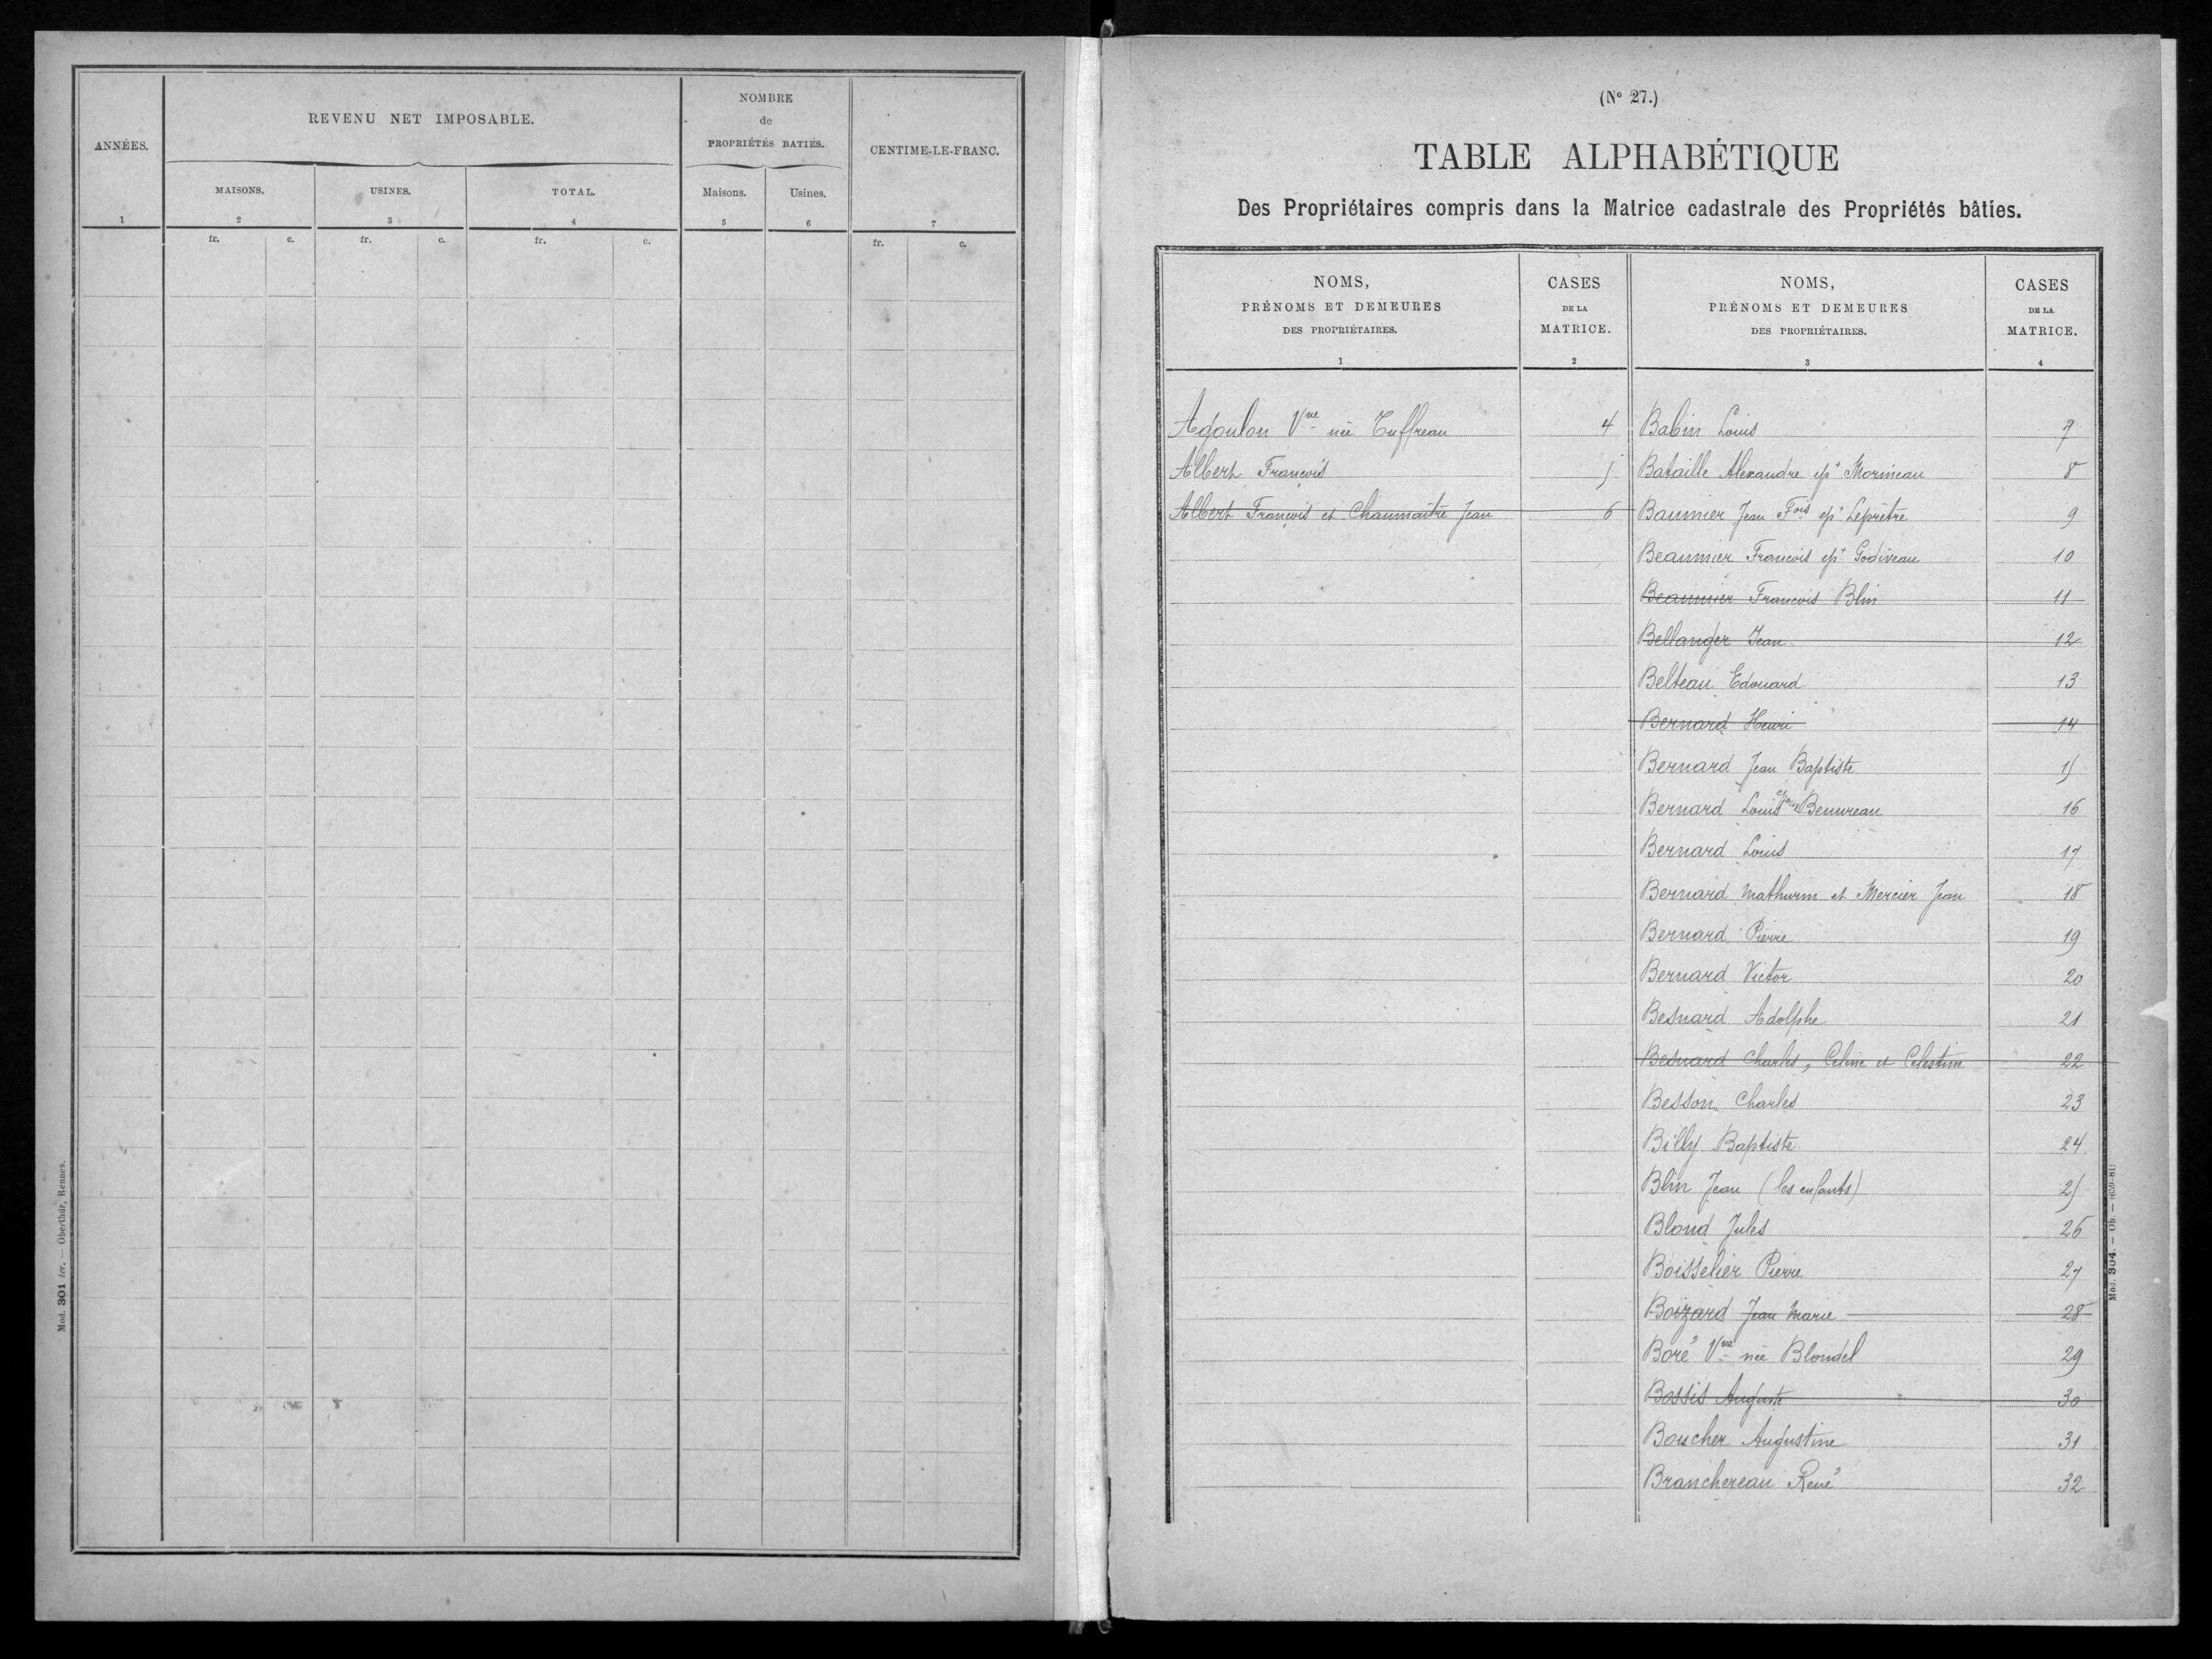 ANNÉES.
REVENU NET IMPOSABLE.
NOMBRE
de
PROPRIÉTÉS BATIES.
CENTIME-LE-FRANC.
MAISONS.
USINES.
TOTAL.
Maisons.
Usines.
1 2 3 4 5 6 7
fr. c. fr. c. fr. c. fr. c.
Mod. 301 ter. — Oberthür, Rennes.
(No 27.)
TABLE ALPHABÉTIQUE
Des Propriétaires compris dans la Matrice cadastrale des Propriétés bâties.
NOMS,
PRÉNOMS ET DEMEURES
DES PROPRIÉTAIRES.
1
CASES
DE LA
MATRICE.
2
NOMS,
PRÉNOMS ET DEMEURES
DES PROPRIÉTAIRES.
3
CASES
DE LA
MATRICE.
4
Agoulon Vve née Tuffreau 4
Albert François 5
Albert François et Chaumaitre Jean 6
Babin Louis 7
Bataille Alexandre epx Morineau 8
Baumier Jean Fois epx Leprêtre 9
Beaumier Francois epx Godiveau 10
Beaumier Francois Blin 11
Bellanger Jean 12
Belteau Edouard 13
Bernard Henri 14
Bernard Jean Baptiste 15
Bernard Louis Benureau 16
Bernard Louis 17
Bernard Mathurin et Mercier Jean 18
Bernard Pierre 19
Bernard Victor 20
Besnard Adolphe 21
Besnard Charles, Celine et Celestine 22
Besson Charles 23
Billy Baptiste 24
Blin Jean (les enfants) 25
Blond Jules 26
Boisselier Pierre 27
Boizard Jean Marie 28
Boré Vve née Blondel 29
Bossis Auguste 30
Boucher Augustine 31
Branchereau René 32
Mod. 304. — Ob. — 1639-81